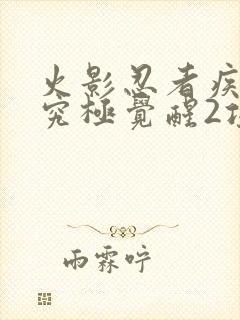 火影忍者疾
究極覺醒2
雨霖咛